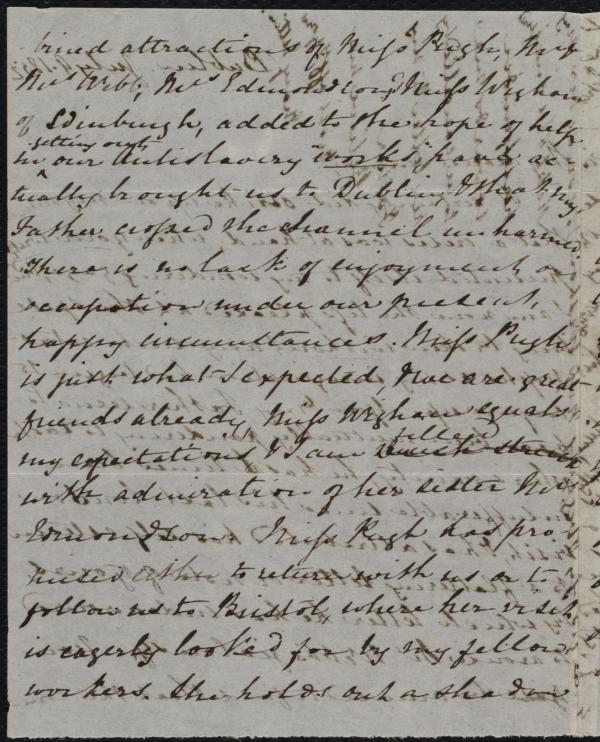 bined attractions of Miss Pugh, Mr &
Mrs Webb, Mrs Edmondson, Miss Wigham
of Edinburgh, added to the hope of help
getting out
in our Antislavery "works", have ac-
tually brought us to Dublin, & that my
Father crossed the channel unharmed.
There is no lack of enjoyment or
occupation under our present
happy circumstances. Miss Pugh
is just what I expected, & we are great
friends already, Miss Wigham equals
filled
my expectations & I am much struck
with admiration of her sister Mrs
Edmondson. Miss Pugh has pro-
mised either to return with us or to
follow us to Bristol, where her visit
is eagerly looked for by my fellow
workers. She holds out a shadow